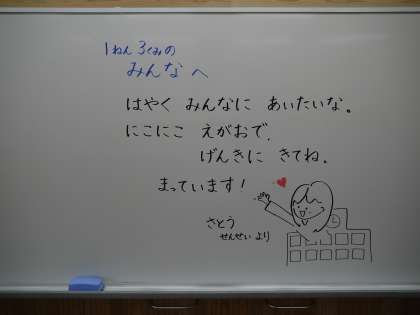 1ねん3くみの
みんなへ
はやく みんなに あいたいな。
にこにこ えがおで、
げんきに きてね。
まっています!
さとう
せんせい より